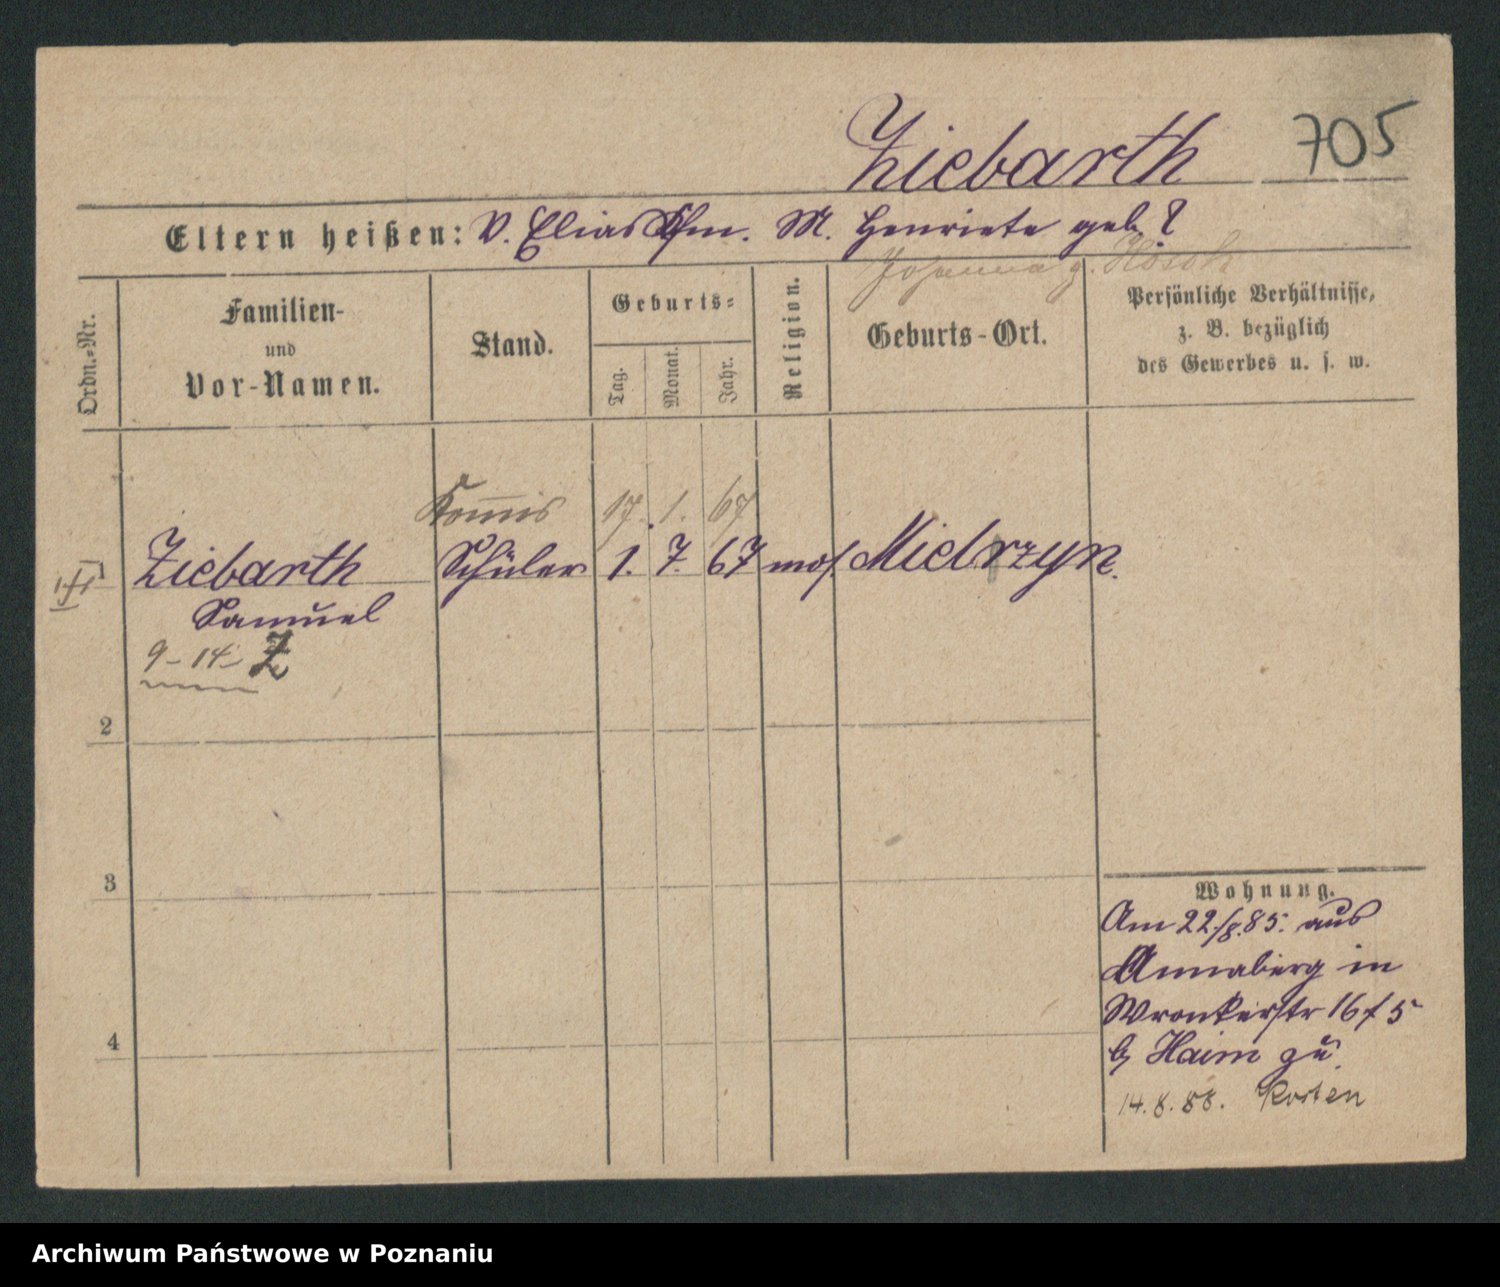 Ziebarth 705
Eltern heißen: V. Elias Kfm. M. Henriete geb. ?
Johanna g.
Ordn.=Nr.
Familien-
und
Vor-Namen.
Stand.
Geburts=
Tag.
Monat.
Jahr.
Religion.
Geburts-Ort.
Persönliche Verhältnisse,
z. B. bezüglich
des Gewerbes u. s. w.
Kom̅is 17. 1. 67
1 Ziebarth Schüler 1. 7. 67 mos. Mielrzyn.
Samuel
9-14 Z
2
3
4
Wohnung.
Am 22./8.85. aus
Annaberg in
Wronkerstr 16/5
b/ Haim zu.
14.8.88. Kosten
Archiwum Państwowe w Poznaniu